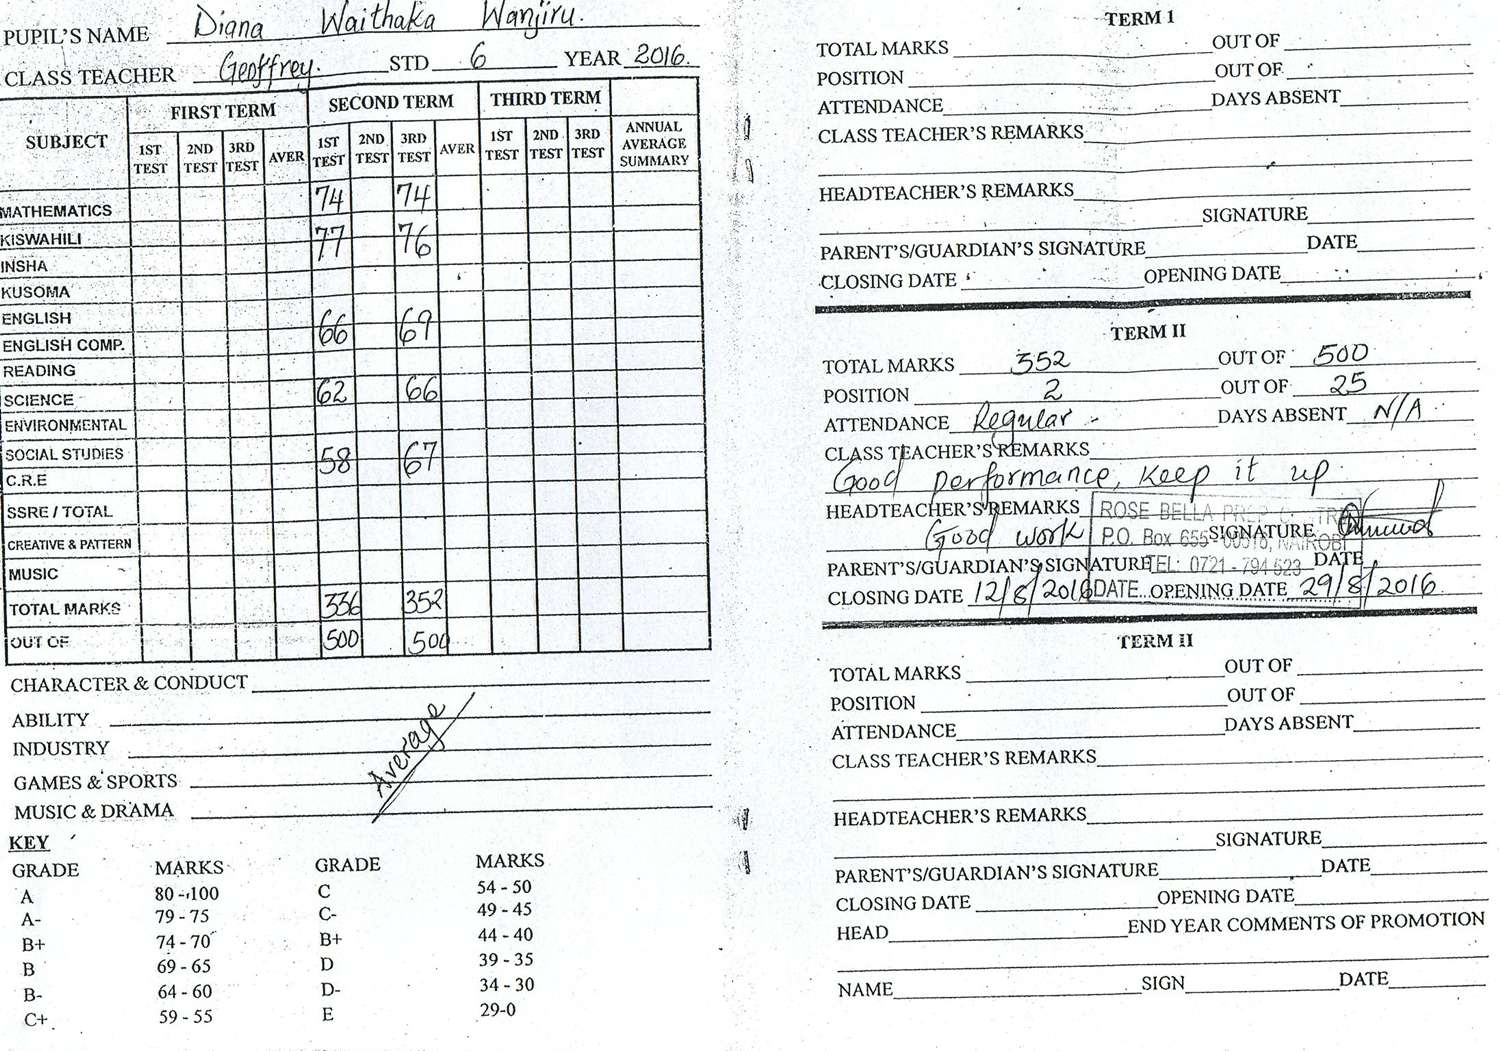 PUPIL'S NAME Diana Waithaka Wanjiru.
CLASS TEACHER Geoffrey. STD 6 YEAR 2016.
SUBJECT FIRST TERM SECOND TERM THIRD TERM ANNUAL AVERAGE SUMMARY
1ST TEST 2ND TEST 3RD TEST AVER 1ST TEST 2ND TEST 3RD TEST AVER 1ST TEST 2ND TEST 3RD TEST
MATHEMATICS 74 74
KISWAHILI 77 76
INSHA
KUSOMA
ENGLISH 66 69
ENGLISH COMP.
READING
SCIENCE 62 66
ENVIRONMENTAL
SOCIAL STUDIES 58 67
C.R.E
SSRE / TOTAL
CREATIVE & PATTERN
MUSIC
TOTAL MARKS 336 352
OUT OF 500 500
CHARACTER & CONDUCT
ABILITY
INDUSTRY
GAMES & SPORTS
MUSIC & DRAMA
Average
KEY
GRADE MARKS GRADE MARKS
A 80 - 100 C 54 - 50
A- 79 - 75 C- 49 - 45
B+ 74 - 70 B+ 44 - 40
B 69 - 65 D 39 - 35
B- 64 - 60 D- 34 - 30
C+ 59 - 55 E 29-0
TERM 1
TOTAL MARKS OUT OF
POSITION OUT OF
ATTENDANCE DAYS ABSENT
CLASS TEACHER'S REMARKS
HEADTEACHER'S REMARKS
SIGNATURE
PARENT'S/GUARDIAN'S SIGNATURE DATE
CLOSING DATE OPENING DATE
TERM II
TOTAL MARKS 352 OUT OF 500
POSITION 2 OUT OF 25
ATTENDANCE Regular - DAYS ABSENT N/A
CLASS TEACHER'S REMARKS
Good performance, keep it up
HEADTEACHER'S REMARKS ROSE BELLA PREP
Good work P.O. Box 655 - 00518, NAIROBI SIGNATURE
PARENT'S/GUARDIAN'S SIGNATURE TEL: 0721 - 794 523 DATE
CLOSING DATE 12/8/2016 DATE... OPENING DATE 29/8/2016
TERM II
TOTAL MARKS OUT OF
POSITION OUT OF
ATTENDANCE DAYS ABSENT
CLASS TEACHER'S REMARKS
HEADTEACHER'S REMARKS
SIGNATURE
PARENT'S/GUARDIAN'S SIGNATURE DATE
CLOSING DATE OPENING DATE
HEAD END YEAR COMMENTS OF PROMOTION
NAME SIGN DATE